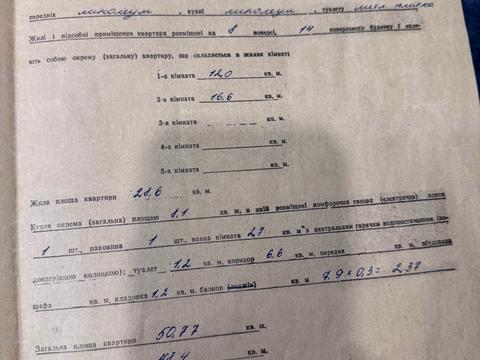 передніх линолеум, кухні линолеум, туалету мел. плитка
Жилі і підсобні приміщення квартири розміщені на 8 поверсі, 14 поверхового будинку і явля-
ють собою окрему (загальну) квартиру, що складається з жилих кімнат:
1-а кімната 12,0 кв. м.
2-а кімната 16,6 кв. м.
3-я кімната кв. м.
4-а кімната кв. м.
5-а кімната кв. м.
Жила площа квартири 28,6 кв. м.
Кухня окрема (загальна) площею 8,1 кв. м, в якій розміщені комфорочна газова (електрична) плита
1 шт., раковина 1 шт. ванна кімната 2,7 кв. м з центральним гарячим водопостачанням (во-
донагрівною колонкою); туалет 1,2 кв. м коридор 6,6 кв. м, передня кв. м, вбудована
шафа кв. м, кладовка 1,2 кв. м, балкон (лоджія) кв. м 7,9 х 0,3 = 2,37
Загальна площа квартири 50,77 кв. м.
48,4 кв. м.